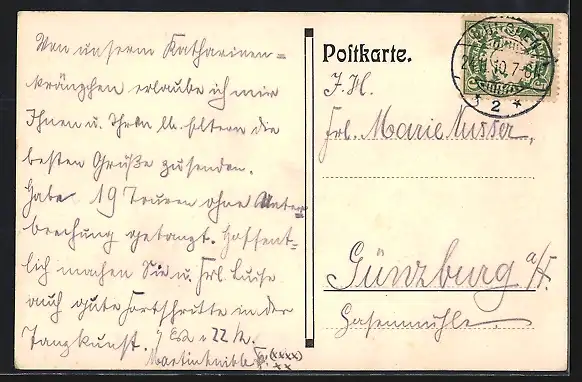 Von unserm Katharinen=
kränzchen erlaube ich mir
Ihnen u. Ihren lb. Eltern die
besten Grüße zu senden.
Habe 19 Touren ohne Unter
brechung getanzt. Hoffent=
lich machen Sie u. Frl. Luise
auch gute Fortschritte in der
Tanzkunst.
Postkarte.
Frl. Marie Nusser,
Günzburg a/D.
Hasenmühle.